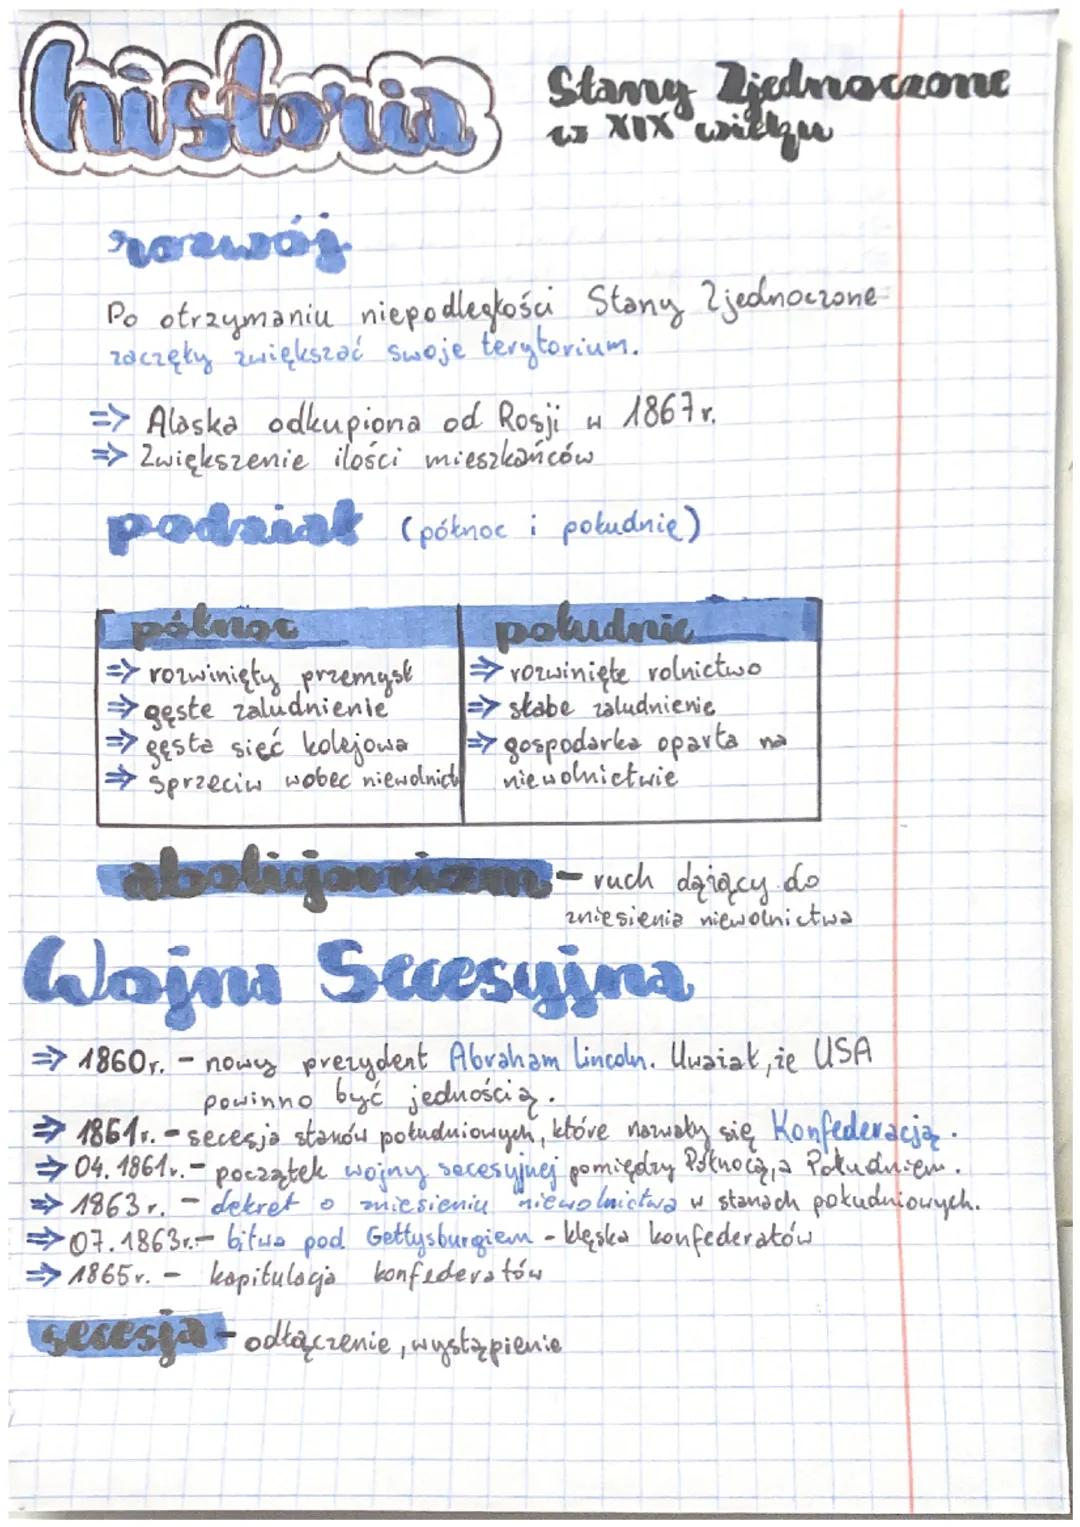 historia
Stany Zjednoczone
w XIX wieku
rozwój
Po otrzymaniu niepodległości Stany Zjednoczone
zaczęły zwiększać swoje terytorium.
=> Alaska odkupiona od Rosji w 1867r.
=> Zwiększenie ilości mieszkańców
podział (północ i południe)
północ
=> rozwinięty przemysł
=> gęste zaludnienie
=> gęsta sieć kolejowa
=> sprzeciw wobec niewolnict
południe
=> rozwinięte rolnictwo
=> słabe zaludnienie
=> gospodarka oparta na
niewolnictwie
abolicjonizm - ruch dążący do
zniesienia niewolnictwa
Wojna Secesyjna
=> 1860r. - nowy prezydent Abraham Lincoln. Uważał, że USA
powinno być jednością.
=> 1861r. - secesja stanów południowych, które nazwały się Konfederacją.
=> 04.1861r. - początek wojny secesyjnej pomiędzy Północą, a Południem.
=> 1863r. - dekret o zniesieniu niewolnictwa w stanach południowych.
=> 07.1863r. - bitwa pod Gettysburgiem - klęska konfederatów
=> 1865r. - kapitulacja konfederatów
secesja - odłączenie, wystąpienie